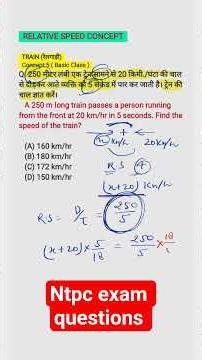 RELATIVE SPEED CONCEPT
TRAIN (रेलगाड़ी)
Concept:5 ( Basic Class )
Q. 250 मीटर लंबी एक ट्रेन सामने से 20 किमी./घंटा की चाल
से दौड़कर आते व्यक्ति को 5 सेकंड में पार कर जाती है। ट्रेन की
चाल ज्ञात करें।
A 250 m long train passes a person running
from the front at 20 km/hr in 5 seconds. Find the
speed of the train?
(A) 160 km/hr
(B) 180 km/hr
(C) 172 km/hr
(D) 150 km/hr
+
x
20 km/h
R.S
(x+20) km/h
R.S = D/T = 250/5
(x+20) × 5/18 = 250/5 × 18
Ntpc exam
questions